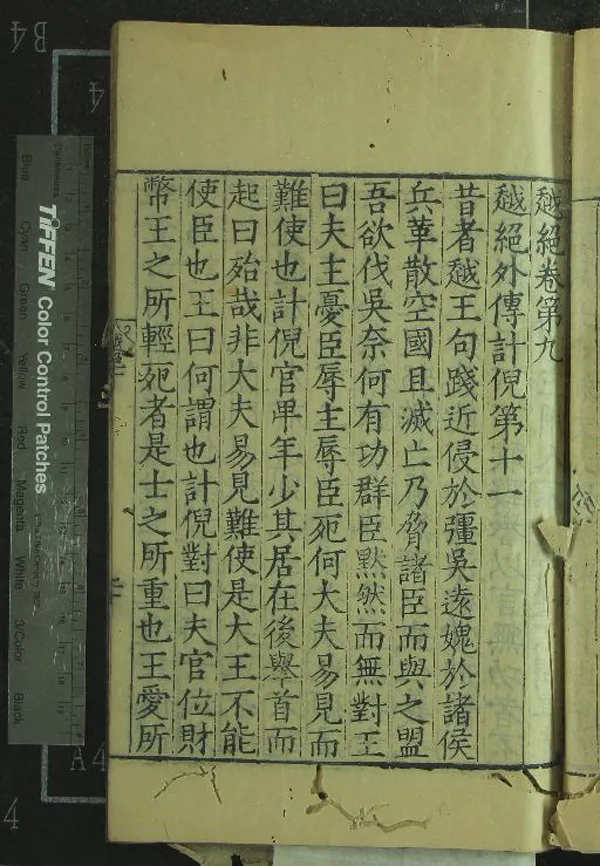 越絕卷第九
越絕外傳計倪第十一
昔者越王句踐近侵於彊吳遠媿於諸侯
兵革散空國且滅亡乃脅諸臣而與之盟
吾欲伐吳奈何有功群臣默然而無對王
曰夫主憂臣辱主辱臣死何大夫易見而
難使也計倪官卑年少其居在後舉首而
起曰殆哉非大夫易見難使是大王不能
使臣也王曰何謂也計倪對曰夫官位財
幣王之所輕死者是士之所重也王愛所
TIFFEN Color Control Patches
Blue
Cyan
Green
Yellow
Red
Magenta
White
3/Color
Black
B4
4
A4
4